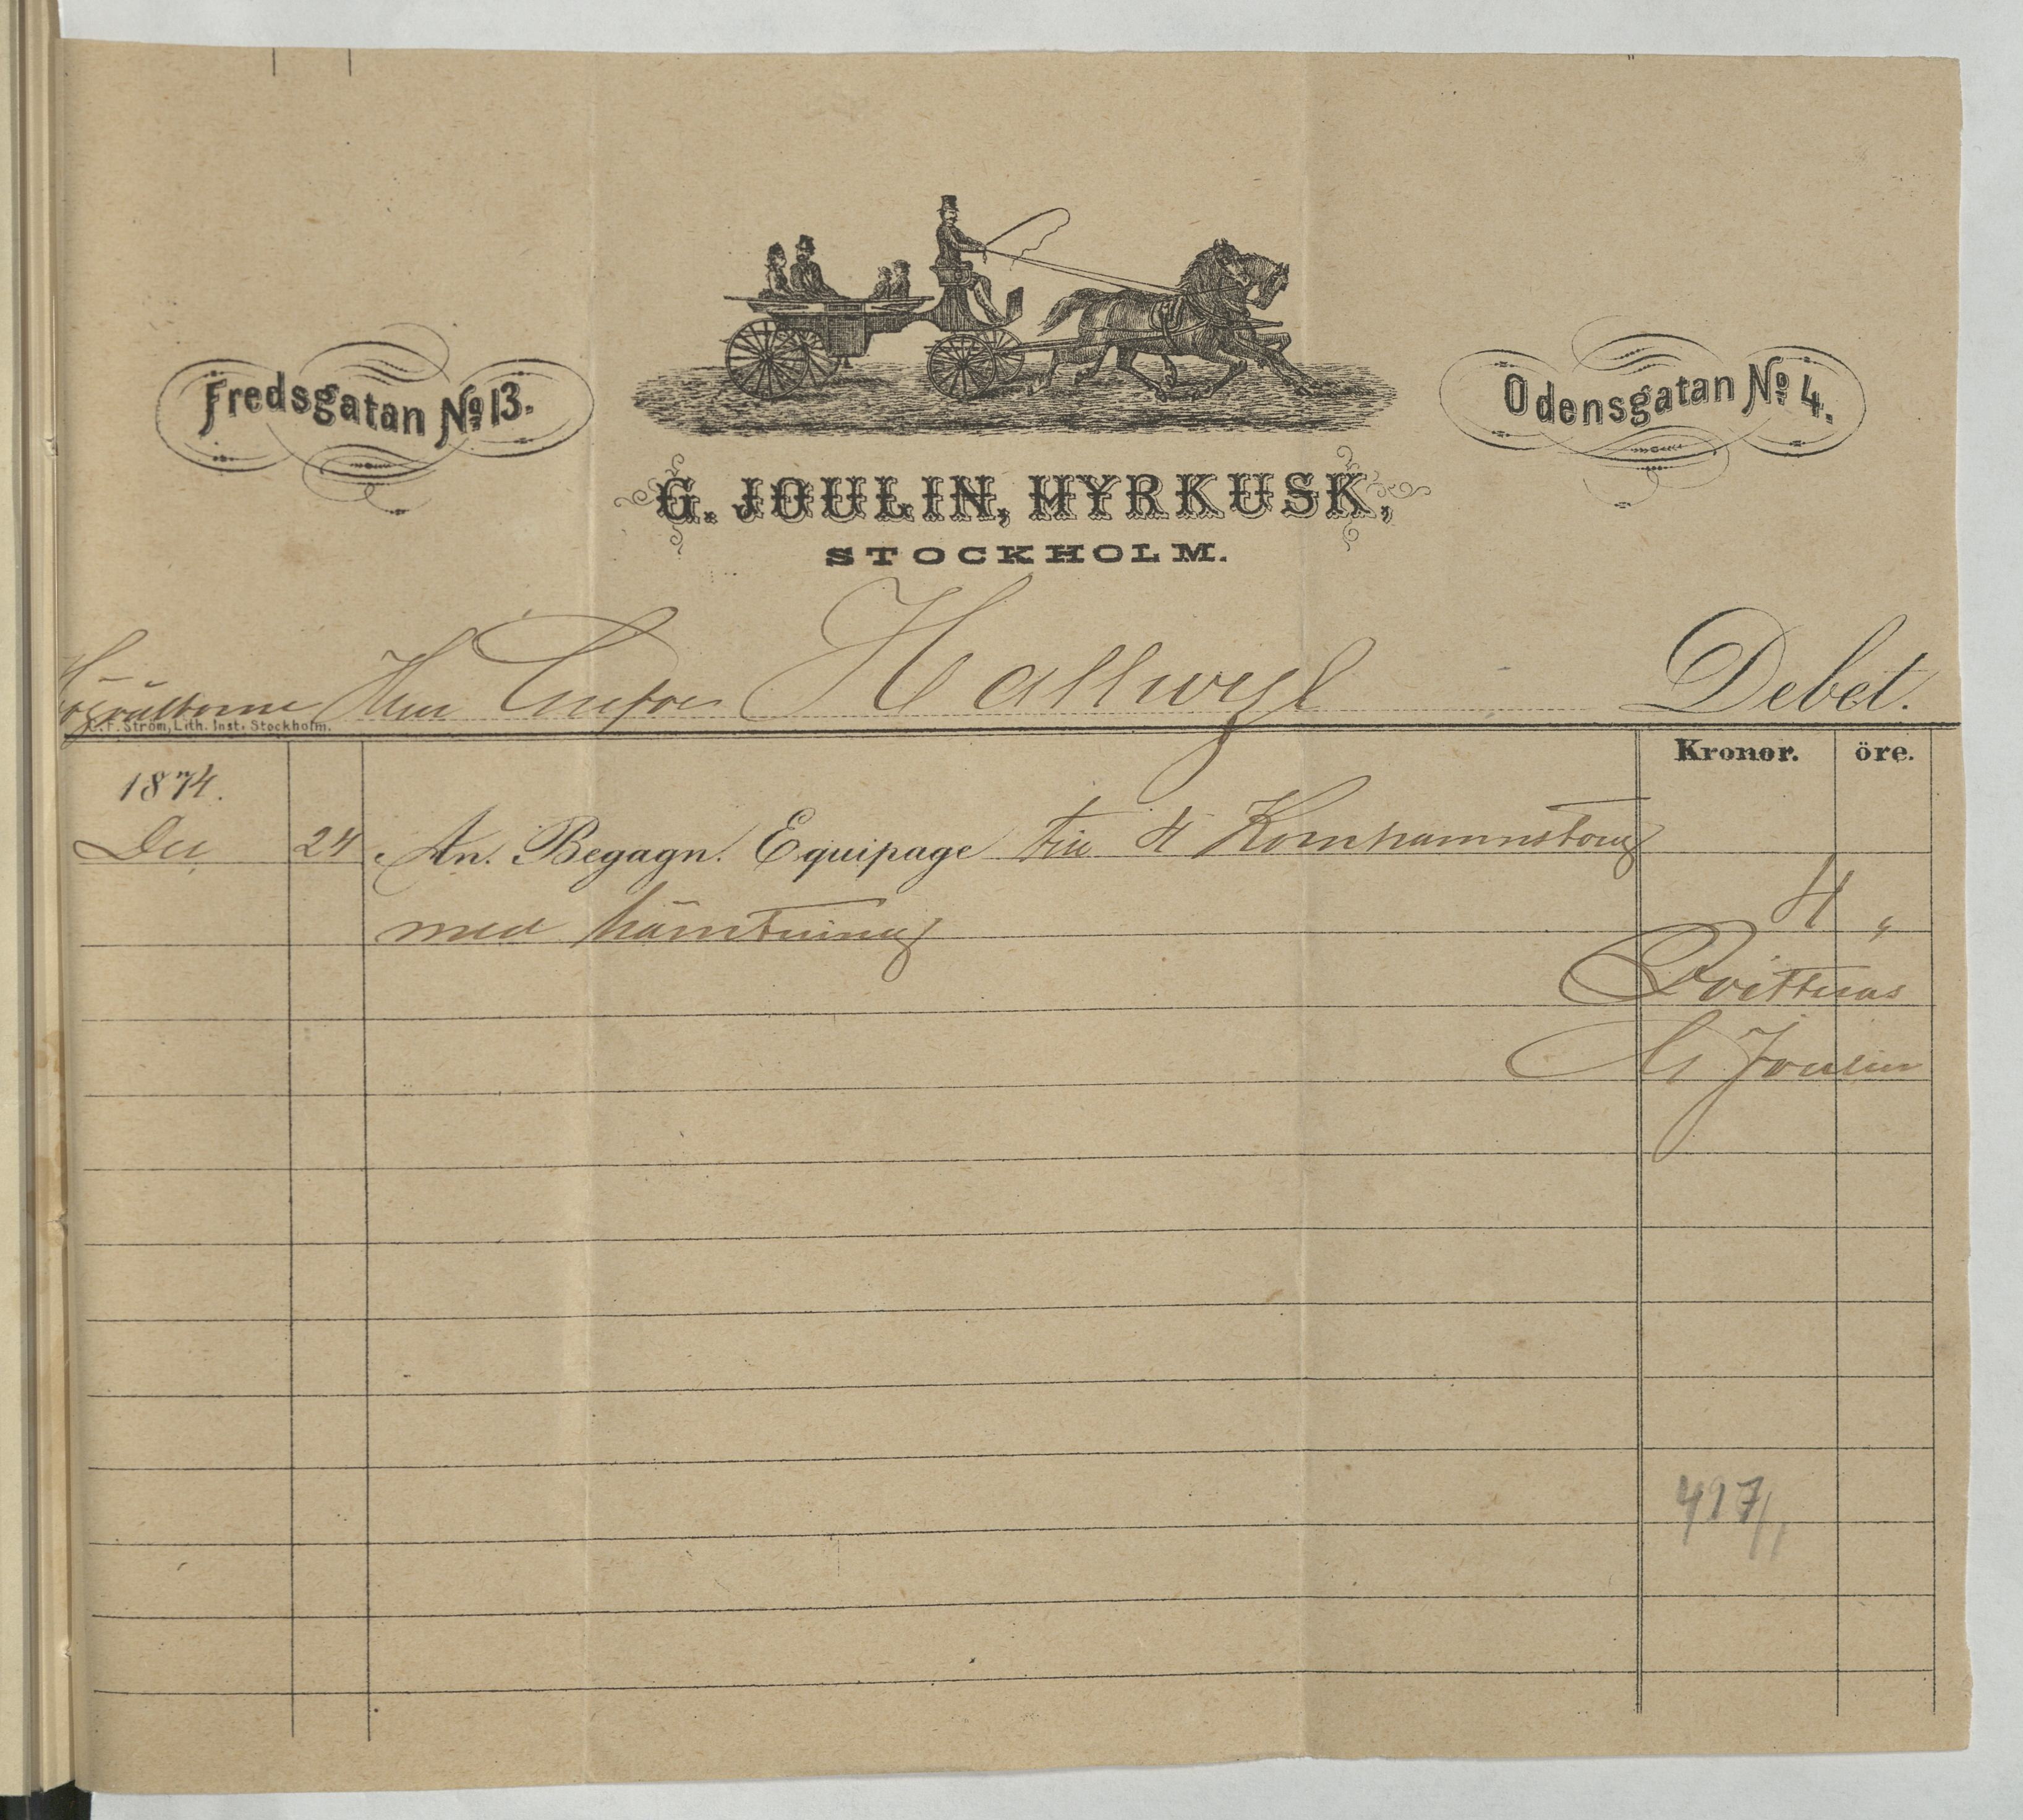 Fredsgatan No 13.
Odensgatan No 4.
G. JOULIN, HYRKUSK,
STOCKHOLM.
Herr Hallwyl Debet.
C. F. Ström, Lith. Inst. Stockholm.
Kronor. öre.
1874.
24 An. Begagn. Equipage till 4 Kornhamnstorg
med hämtning 4 "
Qvitteras
G Joulin